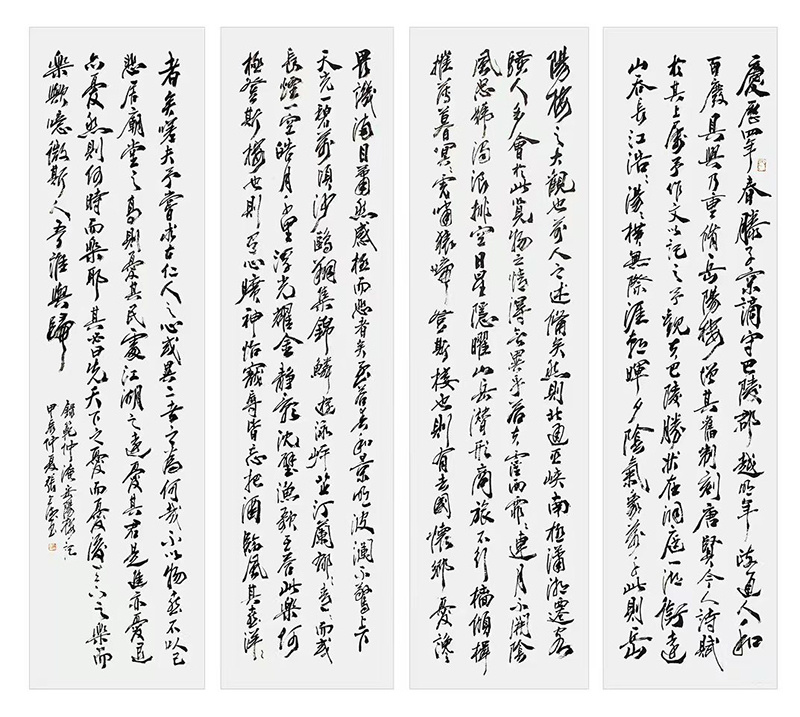 慶歷四年春滕子京謫守巴陵郡越明年政通人和
百廢具興乃重脩岳陽樓增其舊制刻唐賢今人詩賦
於其上屬予作文以記之予觀夫巴陵勝狀在洞庭一湖銜遠
山吞長江浩浩湯湯橫無際涯朝暉夕陰氣象萬千此則岳
陽樓之大觀也前人之述備矣然則北通巫峽南極瀟湘遷客
騷人多會於此覽物之情得無異乎若夫霪雨霏霏連月不開陰
風怒號濁浪排空日星隱曜山岳潛形商旅不行檣傾楫
摧薄暮冥冥虎嘯猿啼登斯樓也則有去國懷鄉憂讒
畏譏滿目蕭然感極而悲者矣至若春和景明波瀾不驚上下
天光一碧萬頃沙鷗翔集錦鱗游泳岸芷汀蘭郁郁青青而或
長煙一空皓月千里浮光耀金靜影沈璧漁歌互答此樂何
極登斯樓也則有心曠神怡寵辱皆忘把酒臨風其喜洋洋
者矣嗟夫予嘗求古仁人之心或異二者之為何哉不以物喜不以己
悲居廟堂之高則憂其民處江湖之遠憂其君是進亦憂退
亦憂然則何時而樂耶其必曰先天下之憂而憂後天下之樂而
樂歟噫微斯人吾誰與歸
錄范仲淹岳陽樓記
甲辰仲夏